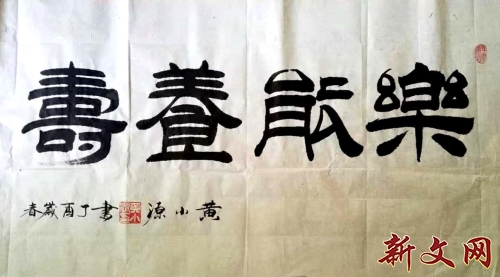 樂能養壽
丁酉歲春
黄小源書
新文网